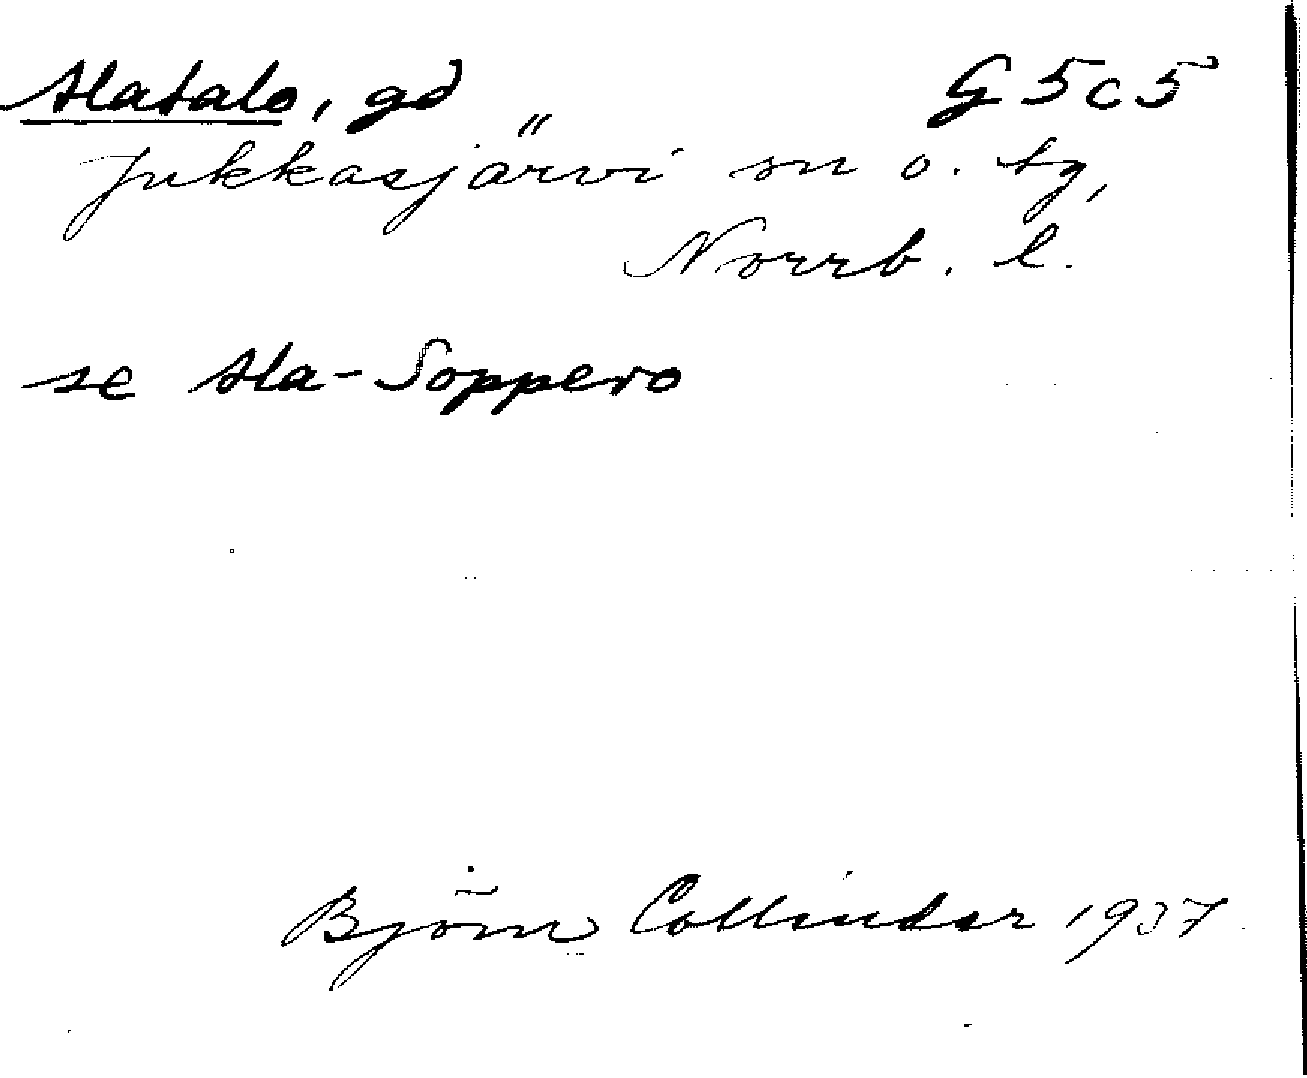 Alatalo, gd G 5 c 5
Jukkasjärvi sn o. tg,
Norrb. l.
se Ala-Soppero
Björn Collinder 1937